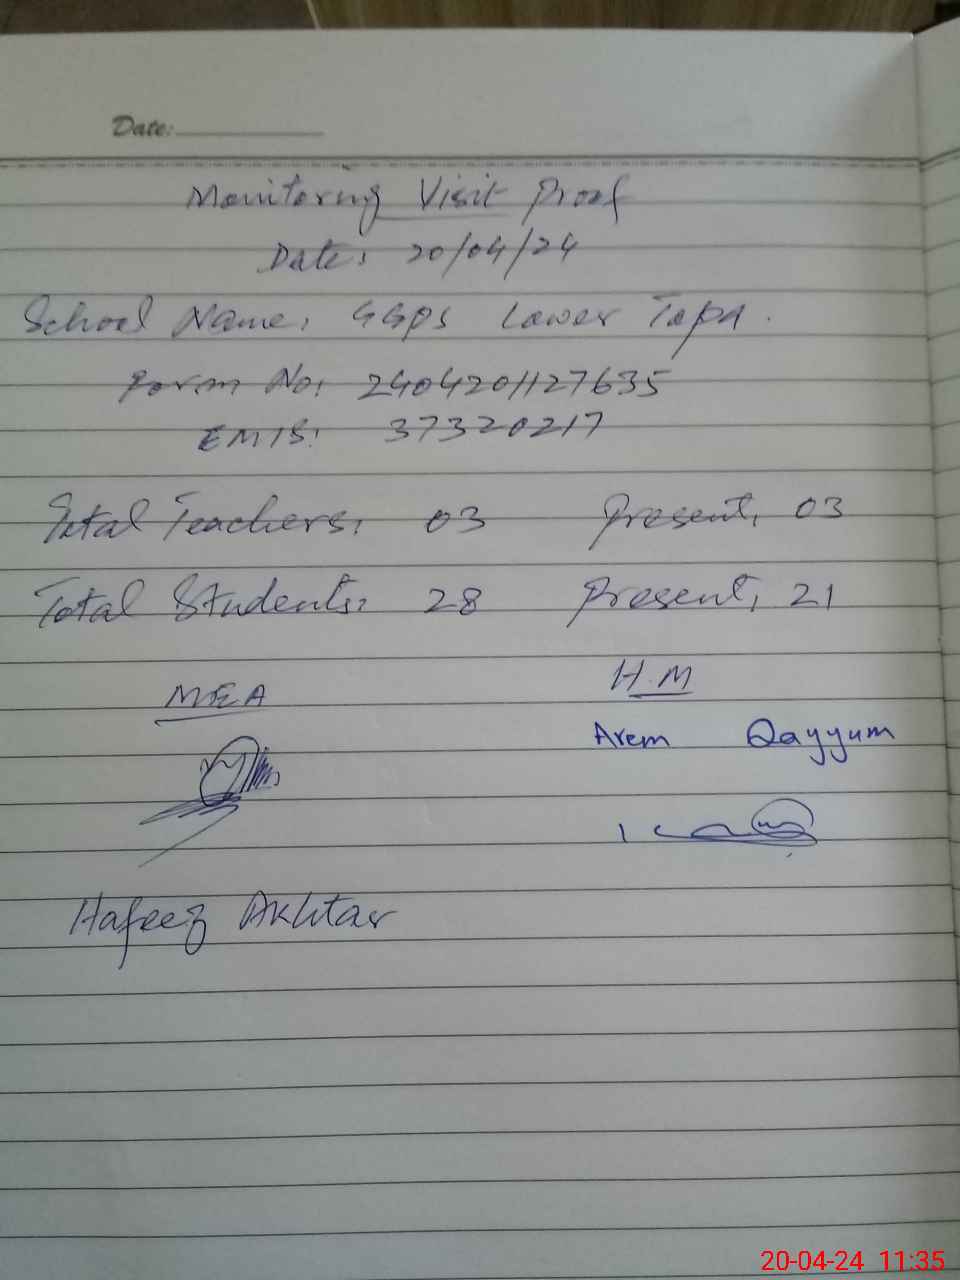 Date:
Monitoring Visit Proof
Date: 20/04/24
School Name: GGPS Lower Topa.
Form No: 2404201127635
EMIS: 37320217
Total Teachers: 03 Present: 03
Total Students: 28 Present: 21
MEA H.M
Arem Qayyum
Hafeez Akhtar
20-04-24 11:35